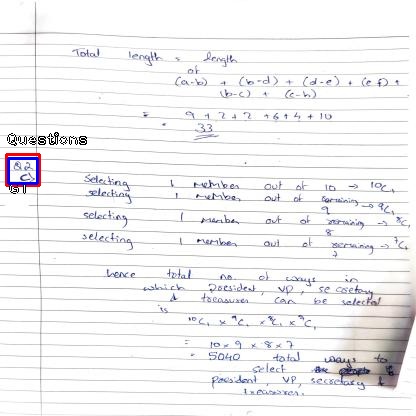 Total length = length
of
(a-b) + (b-d) + (d-e) + (e f) +
(b-c) + (c-h)
= 9 + 2 + 2 + 6 + 4 + 10
= 33
Questions
Q2
a)
61
Selecting 1 member out of 10 → ¹⁰C₁
selecting 1 member out of remaining → ⁹C₁
9
selecting 1 member out of remaining → ⁸C₁
8
selecting 1 member out of remaining → ⁷C₁
7
hence total no. of ways in
which president, VP, secretary
& treasurer can be selected
is
¹⁰C₁ × ⁹C₁ × ⁸C₁ × ⁷C₁
= 10 × 9 × 8 × 7
= 5040 total ways to
select
president, VP, secretary &
treasurer.